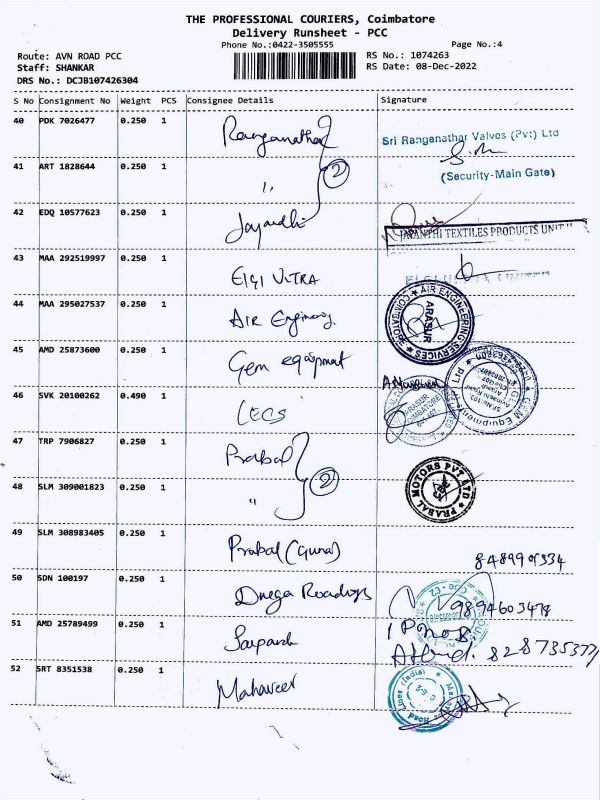 THE PROFESSIONAL COURIERS, Coimbatore
Delivery Runsheet - PCC
Phone No.:0422-3505555
Page No.:4
Route: AVN ROAD PCC
RS No.: 1074263
Staff: SHANKAR
RS Date: 08-Dec-2022
DRS No.: DCJB107426304
S No Consignment No Weight PCS Consignee Details Signature
40 PDK 7026477 0.250 1 Ranganathar
Sri Ranganathar Valves (Pvt) Ltd
(Security-Main Gate)
41 ART 1828644 0.250 1 " 2
42 EDQ 10577623 0.250 1 Jayandhi
JAYANTHI TEXTILES PRODUCTS UNIT "
43 MAA 292519997 0.250 1 ElGi ULTRA
44 MAA 295027537 0.250 1 AIR Enginery
AIR ENGINEERING SERVICES
ARASUR
45 AMD 25873600 0.250 1 Gem equipment
GEM Equipment
46 SVK 20100262 0.490 1 LECS
ARASUR
COIMBATORE
47 TRP 7906827 0.250 1 Prabal
PRABAL MOTORS PVT LTD
48 SLM 309001823 0.250 1 " 2
49 SLM 308983405 0.250 1 Prabal (Guna)
50 SDN 100197 0.250 1
9894603478
51 AMD 25789499 0.250 1
52 SRT 8351538 0.250 1 Mahaveer